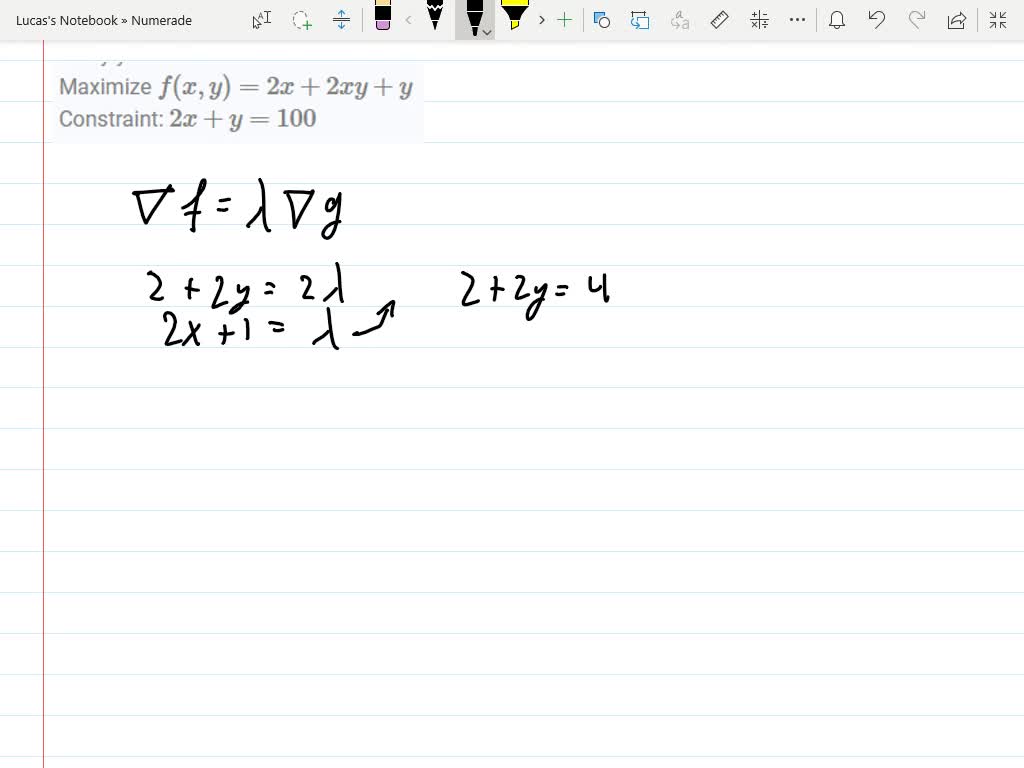 Lucas's Notebook » Numerade
Maximize f(x, y) = 2x + 2xy + y
Constraint: 2x + y = 100
∇f = λ∇g
2 + 2y = 2λ
2x + 1 = λ
2 + 2y = 4